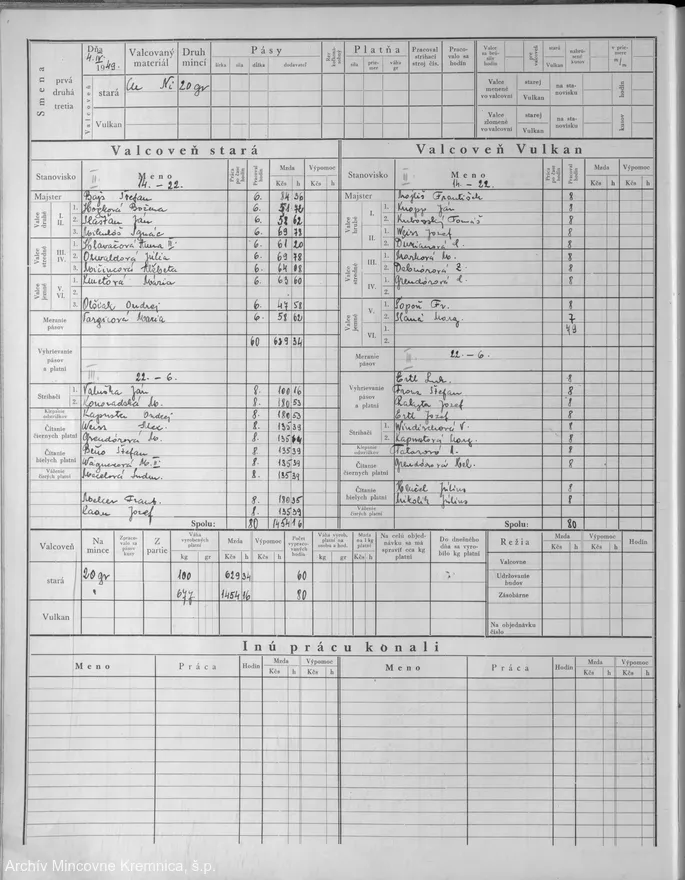 Smena
prvá
druhá
tretia
Dňa
4. IX. 1949.
Valcovaný materiál
Druh mincí
Pásy
šírka sila dĺžka dodavateľ
Platňa
sila priemer váha gr
Pracoval strihací stroj čís.
Pracovalo sa hodín
Valcoveň
stará
Cu Ni 20 gr
Vulkan
Valce menené vo valcovni
starej
Vulkan
na stanovisku
Valce zlomené vo valcovni
starej
Vulkan
na stanovisku
hodín
kusov
Valcoveň stará
Valcoveň Vulkan
Stanovisko Meno Mzda Výpomoc Kčs h Kčs h
14. – 22.
Majster Bajs Štefan 6. 84 36
Valce hrubé I. II.
1. Horková Božena 6. 51
2. Šlášťan Ján 6. 58 62
3. Mikuláš Ignác 6. 69 78
Valce stredné III. IV.
1. Hlavačová Anna II 6. 61 20
2. Oswaldová Júlia 6. 69 78
3. Alžbeta 6. 64 08
Valce jemné V. VI.
1. Kmeťová Mária 6. 63 60
2.
3. Otočiak Ondrej 6. 47 58
Meranie pásov Vargicová Maria 6. 58 62
60 639 34
Vyhrievanie pásov a platní
22. – 6.
Strihači
1. Valuška Ján 8. 100 16
2. M. 8. 180 53
Kapusta Ondrej 8. 180 53
Čítanie čiernych platní Weiss Alex. 8. 135 39
Grendórová M. 8. 135 64
Čítanie bielych platní Beňo Štefan 8. 135 39
Wágnerová M. II 8. 135 39
Váženie čistých platní 8. 135 39
Frant. 8. 180 35
Jozef 8. 135 39
Spolu: 80 1454 16
Stanovisko Meno Mzda Výpomoc Kčs h Kčs h
14. – 22.
Majster František 8
Valce hrubé
I. 1. Knopp Ján 8
2. Kubovský Tomáš 8
II. 1. Weiss Jozef 8
2. Durianová 8
Valce stredné
III. 1. Marková M. 8
2. 8
IV. 1. Grendórová 8
2.
Valce jemné
V. 1. Topoň Fr. 8
2. Slaná Marg. 7
VI. 1. 79
2.
Meranie pásov 22. – 6.
Vyhrievanie pásov a platní
Ertl Lud. 8
Franz Štefan 8
Rakyta Jozef 8
Ertl Jozef 8
Strihači
1. Windischová V. 8
2. Kapustová Marg. 8
Tatarová 8
Čítanie čiernych platní Grendórová Hel. 8
Čítanie bielych platní Július 8
Mikolik Július 8
Váženie čistých platní
Spolu: 80
Valcoveň
Na mince
Z partie
Váha vyrobených platní kg gr
Mzda Kčs h
Výpomoc Kčs h
Počet vypracovaných hodín
Váha vyrob. platní na osobu a hod.
Mzda na 1 kg platní
Na celú objednávku sa má spraviť oca kg platní
Do dnešného dňa sa vyrobilo kg platní
Réžia Mzda Výpomoc
Kčs h Kčs h
stará 20 gr 100 629 34 60
" 677 1454 16 80
Vulkan
Valcovne
Udržiovanie budov
Zásobárne
Na objednávku číslo
Inú prácu konali
Meno Práca Hodín Mzda Výpomoc Kčs h Kčs h
Meno Práca Hodín Mzda Výpomoc Kčs h Kčs h
Archív Mincovne Kremnica, š.p.